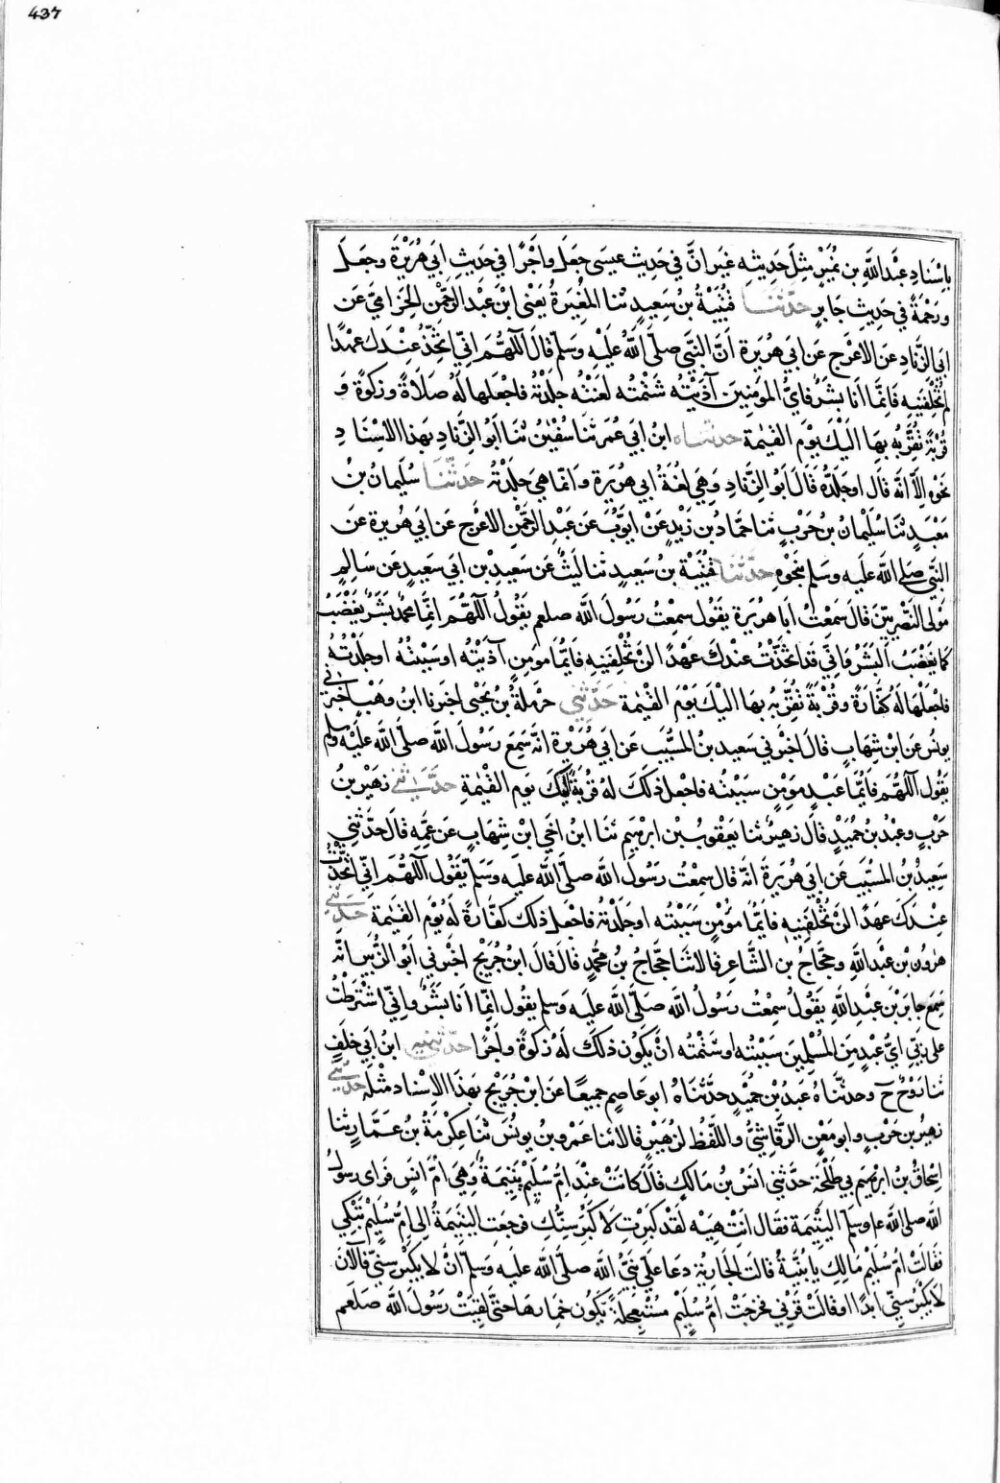 437
باسناد عبد الله بن نمير مثل حديثه غير ان في حديث عيسى جعل واجرا في حديث ابي هريرة وجعل
ورحمة في حديث جابر حدثنا قتيبة بن سعيد ثنا المغيرة يعني ابن عبد الرحمن الحزامي عن
ابي الزناد عن الاعرج عن ابي هريرة ان النبي صلى الله عليه وسلم قال اللهم اني اتخذ عندك عهدا
لم تخلفنيه فانما انا بشر فاي المومنين آذيته شتمته لعنته جلدته فاجعلها له صلاة وزكوة و
قربة تقربه بها اليك يوم القيمة حدثناه ابن ابي عمر ثنا سفين ثنا ابو الزناد بهذا الاسناد
نحوه الا انه قال او جلده قال ابو الزناد وهي لغة ابي هريرة وانما هي جلدته حدثنا سليمان بن
معبد ثنا سليمان بن حرب ثنا حماد بن زيد عن ايوب عن عبد الرحمن الاعرج عن ابي هريرة عن
النبي صلى الله عليه وسلم بنحوه حدثنا قتيبة بن سعيد ثنا ليث عن سعيد بن ابي سعيد عن سالم
مولى النصريين قال سمعت ابا هريرة يقول سمعت رسول الله صلعم يقول اللهم انما محمد بشر يغضب
كما يغضب البشر واني قد اتخذت عندك عهدا لن تخلفنيه فايما مومن آذيته او سببته او جلدته
فاجعلها له كفارة وقربة تقربه بها اليك يوم القيمة حدثني حرملة بن يحيى اخبرنا ابن وهب اخبرني
يونس عن ابن شهاب قال اخبرني سعيد بن المسيب عن ابي هريرة انه سمع رسول الله صلى الله عليه وسلم
يقول اللهم فايما عبد مومن سببته فاجعل ذلك له قربة اليك يوم القيمة حدثني زهير بن
حرب وعبد بن حميد قال زهير ثنا يعقوب بن ابرهيم ثنا ابن اخي ابن شهاب عن عمه قال حدثني
سعيد بن المسيب عن ابي هريرة انه قال سمعت رسول الله صلى الله عليه وسلم يقول اللهم اني اتخذت
عندك عهدا لن تخلفنيه فايما مومن سببته او جلدته فاجعل ذلك كفارة له يوم القيمة حدثني
هرون بن عبد الله وحجاج بن الشاعر قالا ثنا حجاج بن محمد قال قال ابن جريج اخبرني ابو الزبير انه
سمع جابر بن عبد الله يقول سمعت رسول الله صلى الله عليه وسلم يقول انما انا بشر واني اشترطت
على ربي اي عبد من المسلمين سببته او شتمته ان يكون ذلك له زكوة واجرا حدثنيه ابن ابي خلف
ثنا روح ح وحدثناه عبد بن حميد حدثناه ابو عاصم جميعا عن ابن جريج بهذا الاسناد مثله حدثني
زهير بن حرب وابو معن الرقاشي واللفظ لزهير قالا ثنا عمر بن يونس ثنا عكرمة بن عمار ثنا
اسحاق بن ابرهيم بي طلحة حدثني انس بن مالك قال كانت عند ام سليم يتيمة وهي ام انس فراى رسول
الله صلى الله عليه وسلم اليتيمة فقال انت هيه لقد كبرت لا كبر سنك فرجعت اليتيمة الى ام سليم تبكي
فقالت ام سليم مالك يا بنية قالت الجارية دعا علي نبي الله صلى الله عليه وسلم ان لا يكبر سني فالآن
لا يكبر سني ابدا او قالت قرني فخرجت ام سليم مستعجلة خمارها حتى لقيت رسول الله صلعم